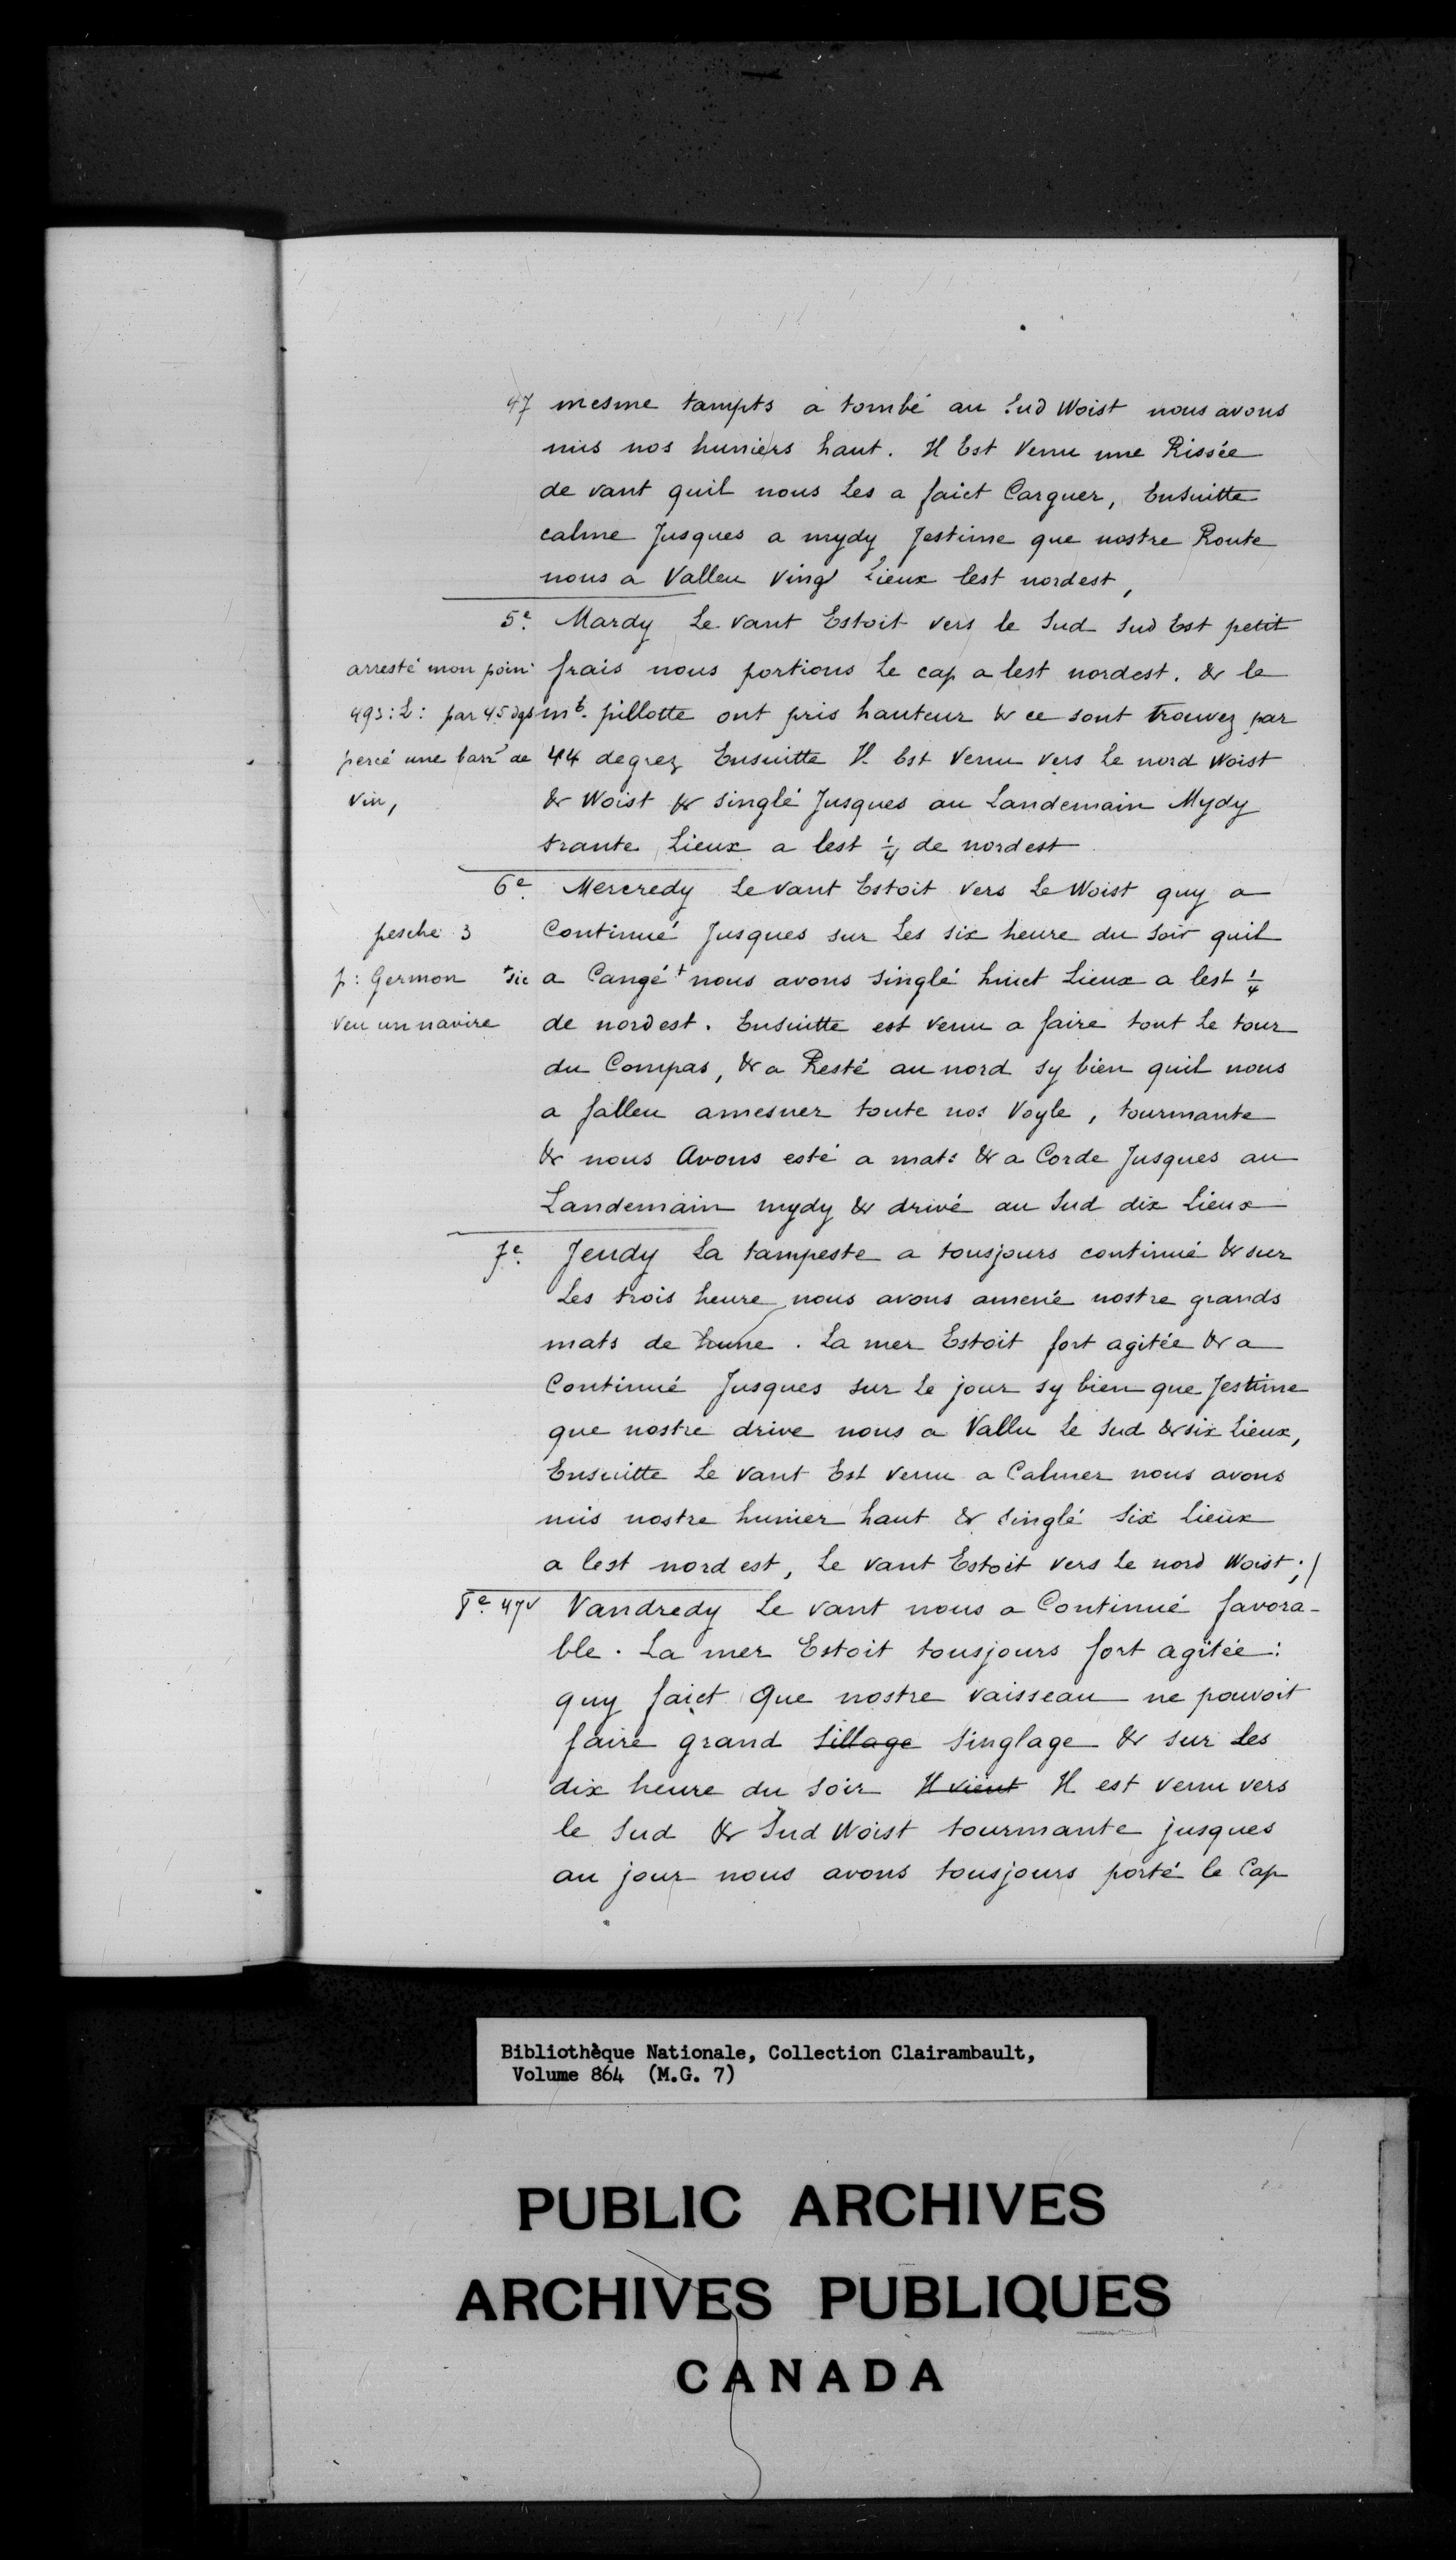 47 mesme tampts a tombé au Sud Woist nous avons
mis nos huniers haut. Il Est Venu une Rissée
de vant quil nous Les a faict Carguer, Ensuitte
calme Jusques a mydy Jestime que nostre Route
nous a Valleu Ving Lieux lest nordest,
5e. Mardy Le vant Estoit vers le Sud Sud Est petit
arresté mon poin frais nous portions Le cap a lest nordest. & le
493: L: par 45 dgs mt. pillotte ont pris hauteur & ce sont trouvez par
percé une barr de 44 degrez Ensuitte Il Est Venu vers Le nord Woist
vin, & Woist & singlé Jusques au Landemain Mydy
trante Lieux a lest 1/4 de nordest
6e. Mercredy Le vant Estoit vers Le Woist quy a
pesche 3 Continué Jusques sur Les six heure du Soir quil
p: Germon +sic a Cangé+ nous avons singlé huict Lieux a lest 1/4
veu un navire de nordest. Ensuitte est venu a faire tout Le tour
du Compas, & a Resté au nord sy bien quil nous
a falleu amesner toute nos Voyle, tourmante
& nous Avons esté a mats & a Corde Jusques au
Landemain mydy & drivé au Sud dix Lieux
7e. Jeudy La tampeste a tousjours continué & sur
Les trois heure nous avons amené nostre grands
mats de hune. La mer Estoit fort agitée & a
Continué Jusques sur Le jour sy bien que Jestime
que nostre drive nous a Vallu Le Sud & six Lieux,
Ensuitte Le vant Est venu a Calmer nous avons
mis nostre hunier haut & singlé Six Lieux
a lest nord est, Le vant Estoit vers Le nord Woist;/
8e. 47v Vandredy Le vant nous a Continué favora-
ble. La mer Estoit tousjours fort agitée:
quy faict Que nostre vaisseau ne pouvoit
faire grand Sillage Singlage & sur Les
dix heure du Soir Il vient Il est venu vers
le Sud & Sud Woist tourmante jusques
au jour nous avons tousjours porté le Cap
Bibliothèque Nationale, Collection Clairambault,
Volume 864 (M.G. 7)
PUBLIC ARCHIVES
ARCHIVES PUBLIQUES
CANADA